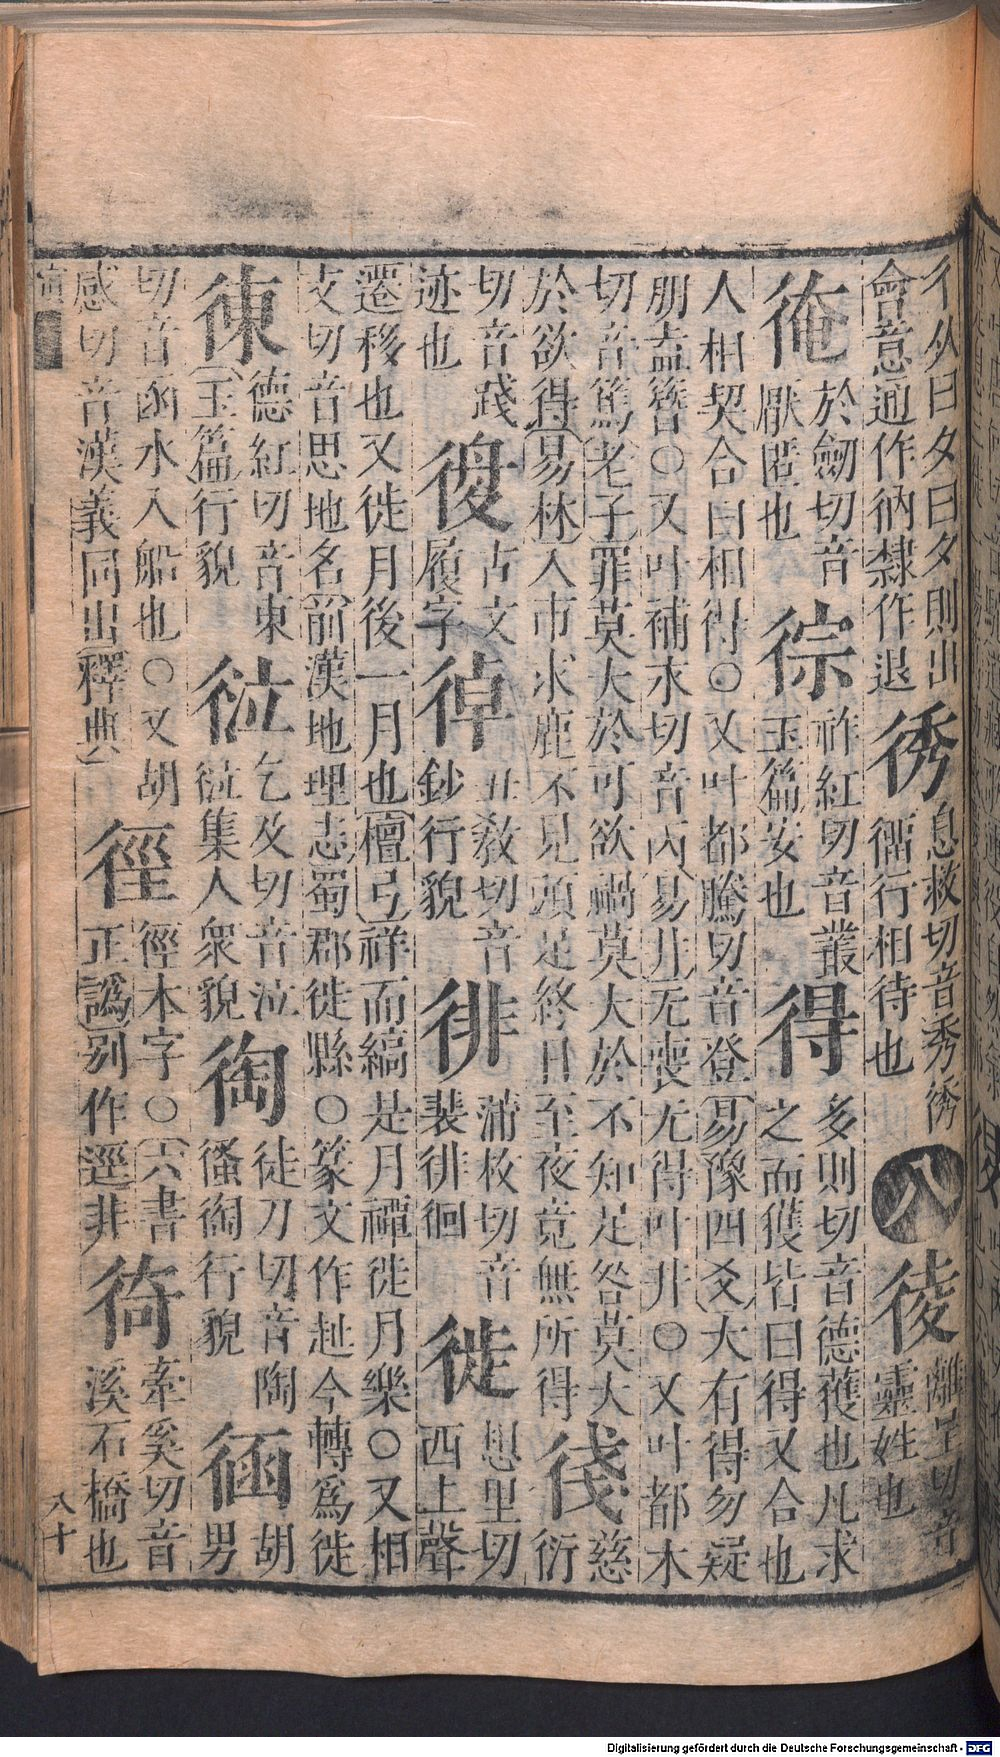 彳从日夊日夊則出
會意通作衲隸作退
息救切音秀
行相待也
八
離呈切音
靈姓也
於劒切音
厭匿也
徖
祚紅切音叢
玉篇安也
得
多則切音德獲也凡求
之而獲皆曰得又合也
人相契合曰相得○又叶都騰切音登易豫四爻大有得勿疑
朋盍簪○又叶補木切音內易井无喪无得叶井○又叶都木
切音篤老子罪莫大於可欲禍莫大於不知足咎莫大
於欲得易林入市求鹿不見頭足終日至夜竟無所得
慈
衍
切音踐
迹也
古文
履字
丑敎切音
鈔行貌
徘
蒲枚切音
裴徘徊
徙
想里切
西上聲
遷移也又徙月後一月也檀弓祥而縞是月禫徙月樂○又相
支切音思地名前漢地理志蜀郡徙縣○篆文作今轉爲徙
徚
德紅切音東
玉篇行貌
乞及切音泣
集人衆貌
徒刀切音陶
行貌
胡
男
切音函水入船也○又胡
感切音漢義同出釋典
徑
徑本字○六書
正譌別作逕非
徛
牽奚切音
溪石橋也
八十
Digitalisierung gefördert durch die Deutsche Forschungsgemeinschaft - DFG